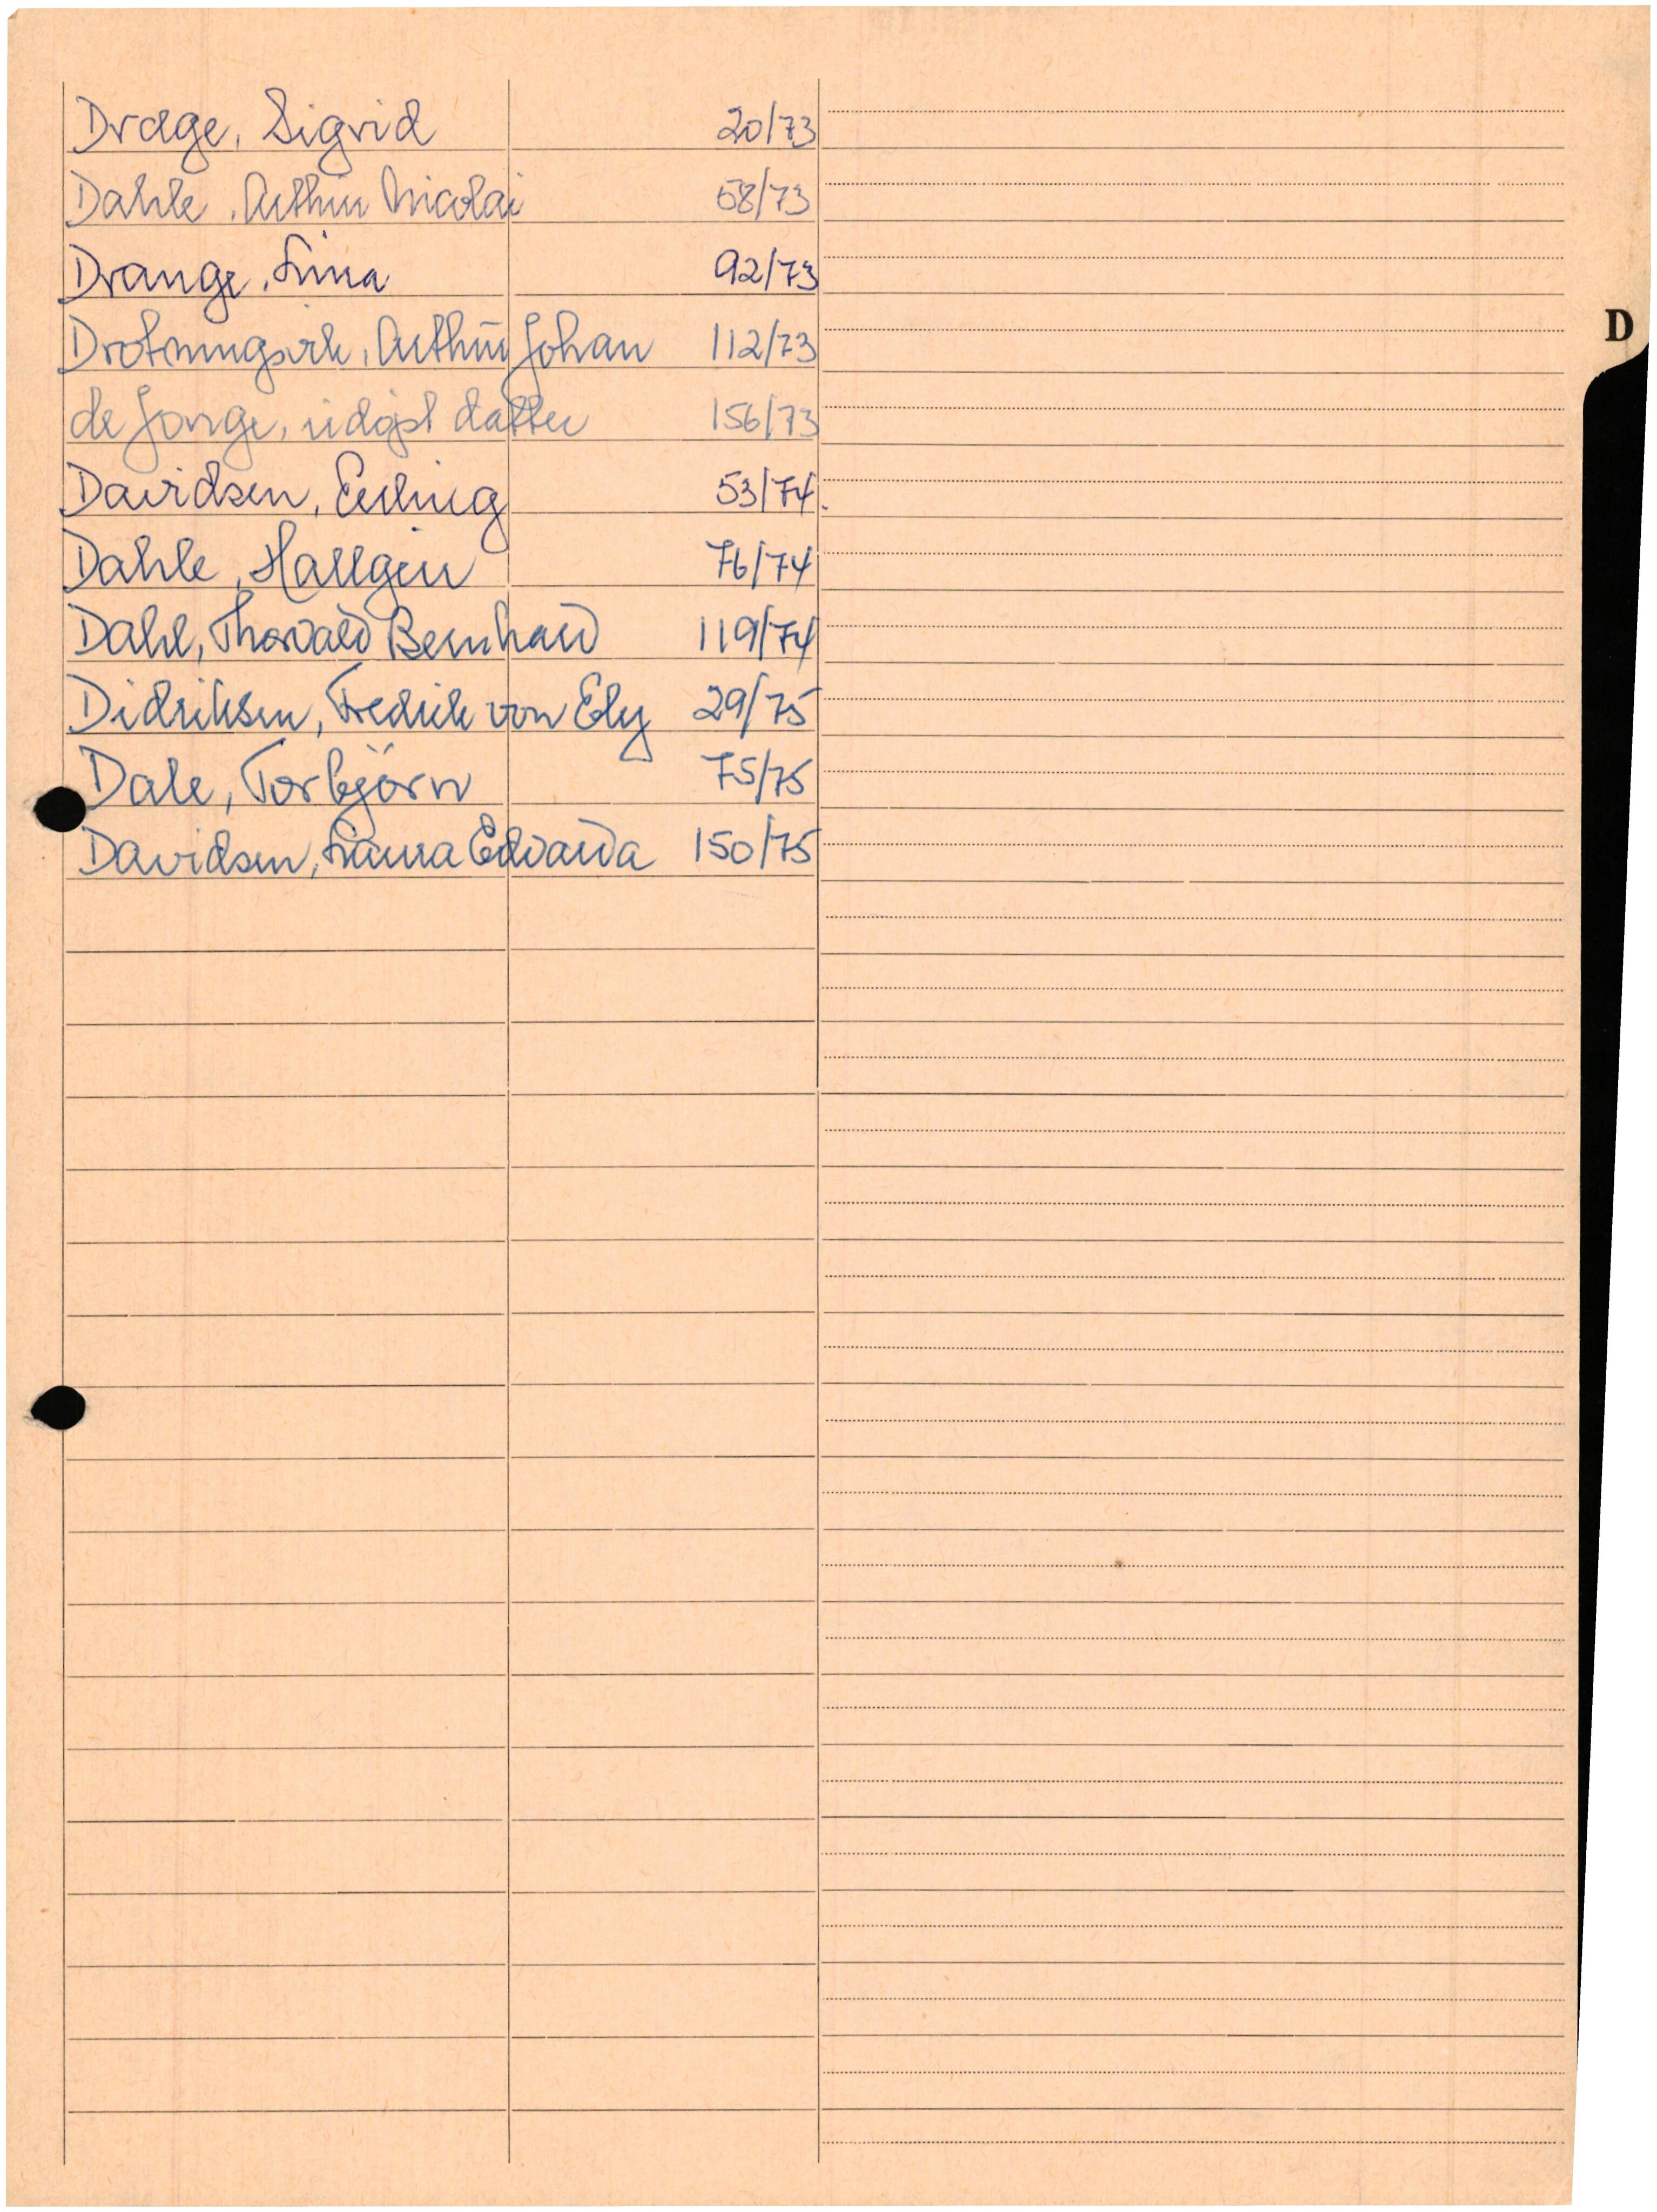 Dræge, Sigrid 20/73
Dahle, Arthur Nicolai 58/73
Drange, Lina 92/73
Drotningsvik, Arthur Johan 112/73
D
de Jonge, udøpt datter 156/73
Davidsen, Erling 53/74
Dahle, Hallgeir 76/74
Dahl, Thorvald Bernhard 119/74
Didriksen, Fredrik von Ely 29/75
Dale, Torbjörn 75/75
Davidsen, Laura Edvarda 150/75